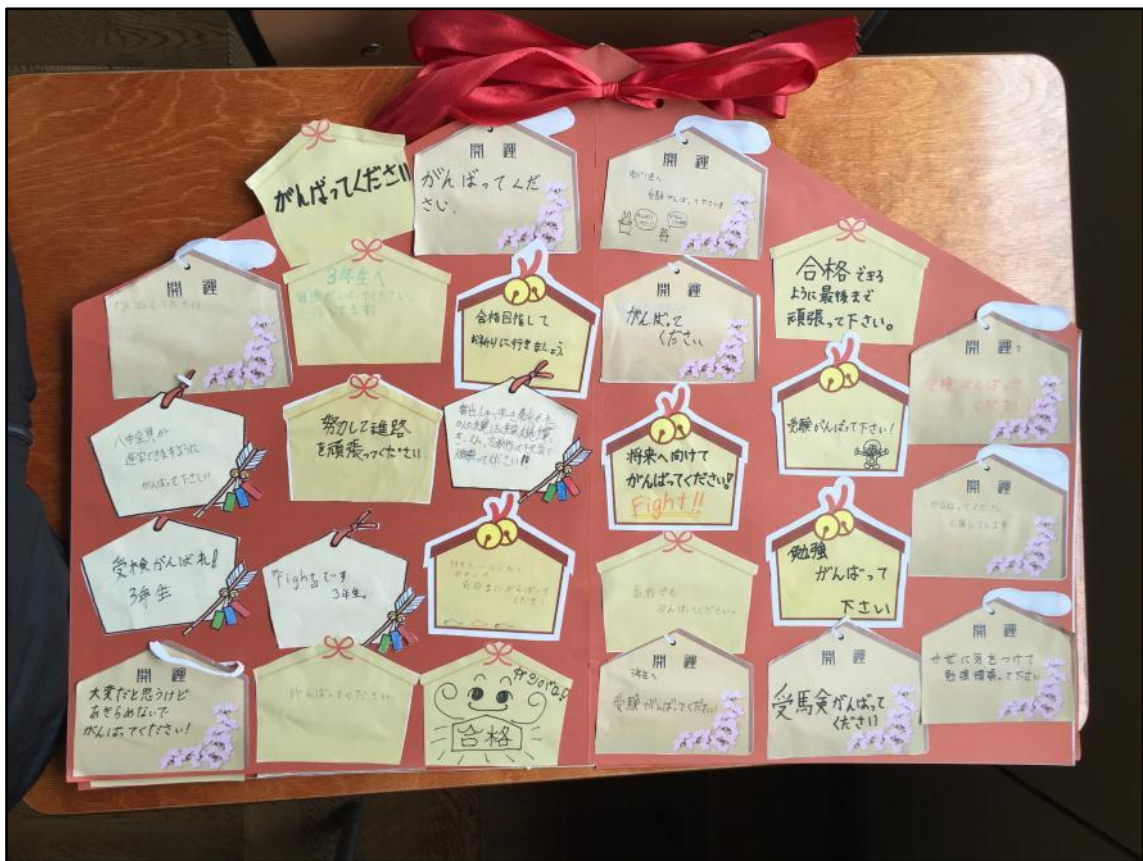 がんばってください
開運
がんばってくだ
さい.
開運
受験がんばってください
開運
がんばってください
3年生へ
受験がんばってください。
応援してます
合格目指して
お祈りに行きましょう
開運
がんばって
ください
合格できる
ように最後まで
頑張って下さい。
開運
受験がんばって
ください
八中全員が
進学できますように
がんばって下さい
努力して進路
を頑張ってください.
頑張ってください!!
将来へ向けて
がんばってください!
Fight!!
受験がんばって下さい!
開運
がんばってください
応援しています
受検がんばれ!
3年生
Fightです
3年生。
がんばって
ください
高校でも
がんばってください。
勉強
がんばって
下さい
開運
かぜに気をつけて
勉強頑張って下さい
開運
大変だと思うけど
あきらめないで
がんばってください!
がんばってください
ガンバロウ
合格
開運
3年生へ
受験がんばってください
開運
受馬険がんばって
ください